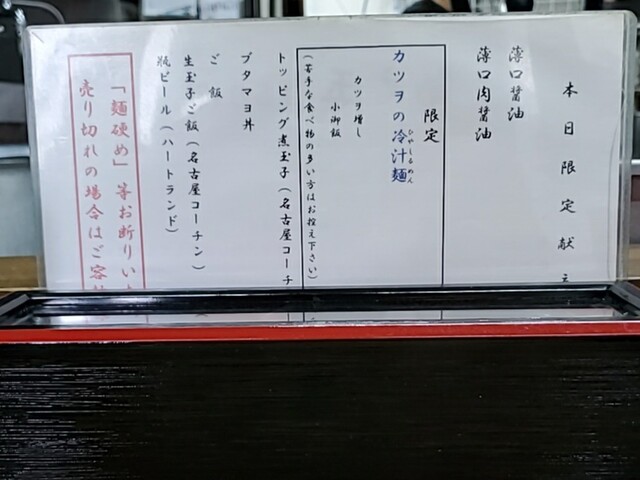 本日限定献
薄口醤油
薄口肉醤油
限定
カツヲの冷汁麺
ひやしるめん
カツヲ増し
小御飯
(苦手な食べ物の多い方はお控え下さい)
トッピング煮玉子(名古屋コーチ
ブタマヨ丼
ご飯
生玉子ご飯(名古屋コーチン)
瓶ビール(ハートランド)
「麺硬め」等お断りい
売り切れの場合はご容